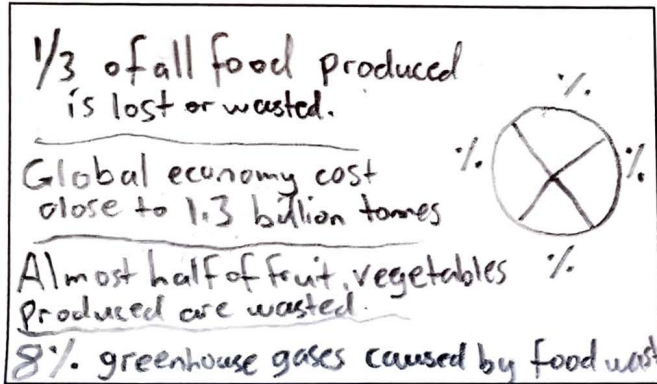 1/3 of all food produced
is lost or wasted.
Global economy cost
close to 1.3 billion tonnes
Almost half of fruit, vegetables
produced are wasted.
8% greenhouse gases caused by food wast
%
%
%
%